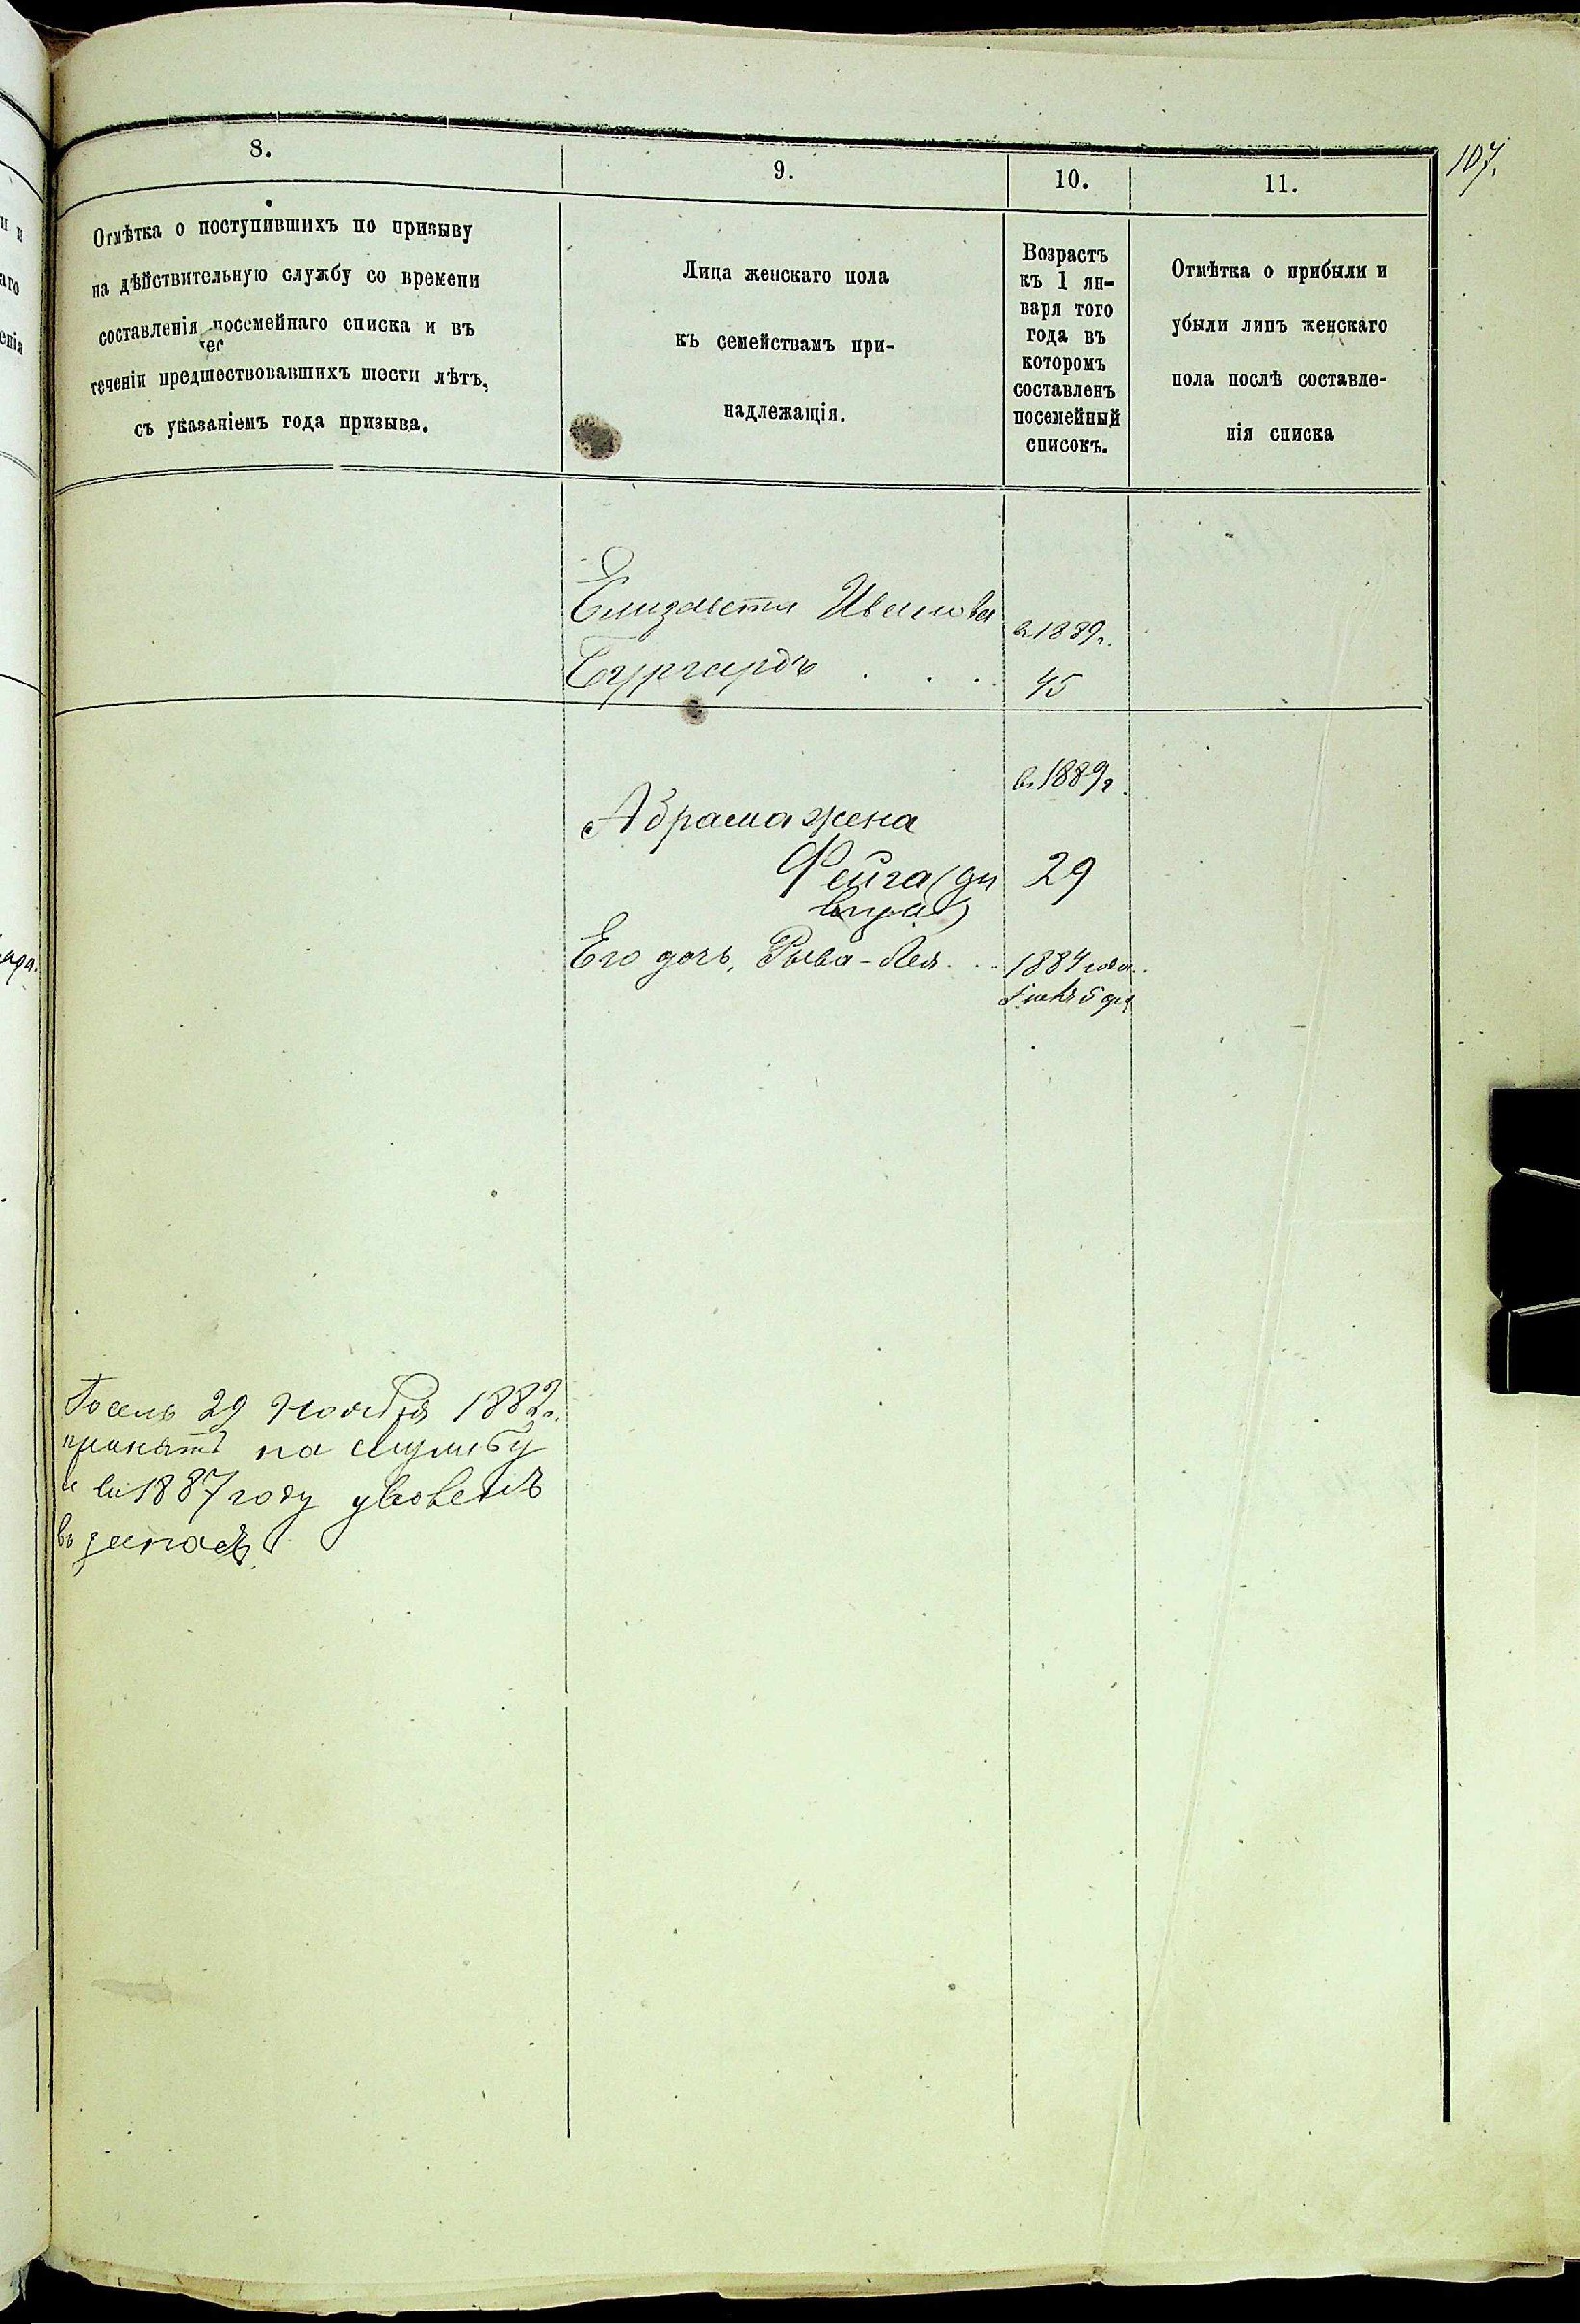 107.
8.
9.
10.
11.
Отмѣтка о поступившихъ по призыву
на дѣйствительную службу со времени
составленія посемейнаго списка и въ
теченіи предшествовавшихъ шести лѣтъ,
съ указаніемъ года призыва.
Лица женскаго пола
къ семействамъ при-
надлежащія.
Возрастъ
къ 1 ян-
варя того
года въ
которомъ
составленъ
посемейный
списокъ.
Отмѣтка о прибыли и
убыли лицъ женскаго
пола послѣ составле-
нія списка
Елизавета Иванова
Бургардъ . . .
в 1889г.
45
в 1889г.
Абрама жена
Фейга (ди
29
Его дочь, Рыва-Лея . . .
1884 года.
29 Ноября 1882г.
принятъ на службу
и въ 1887 году уволенъ
въ запасъ.